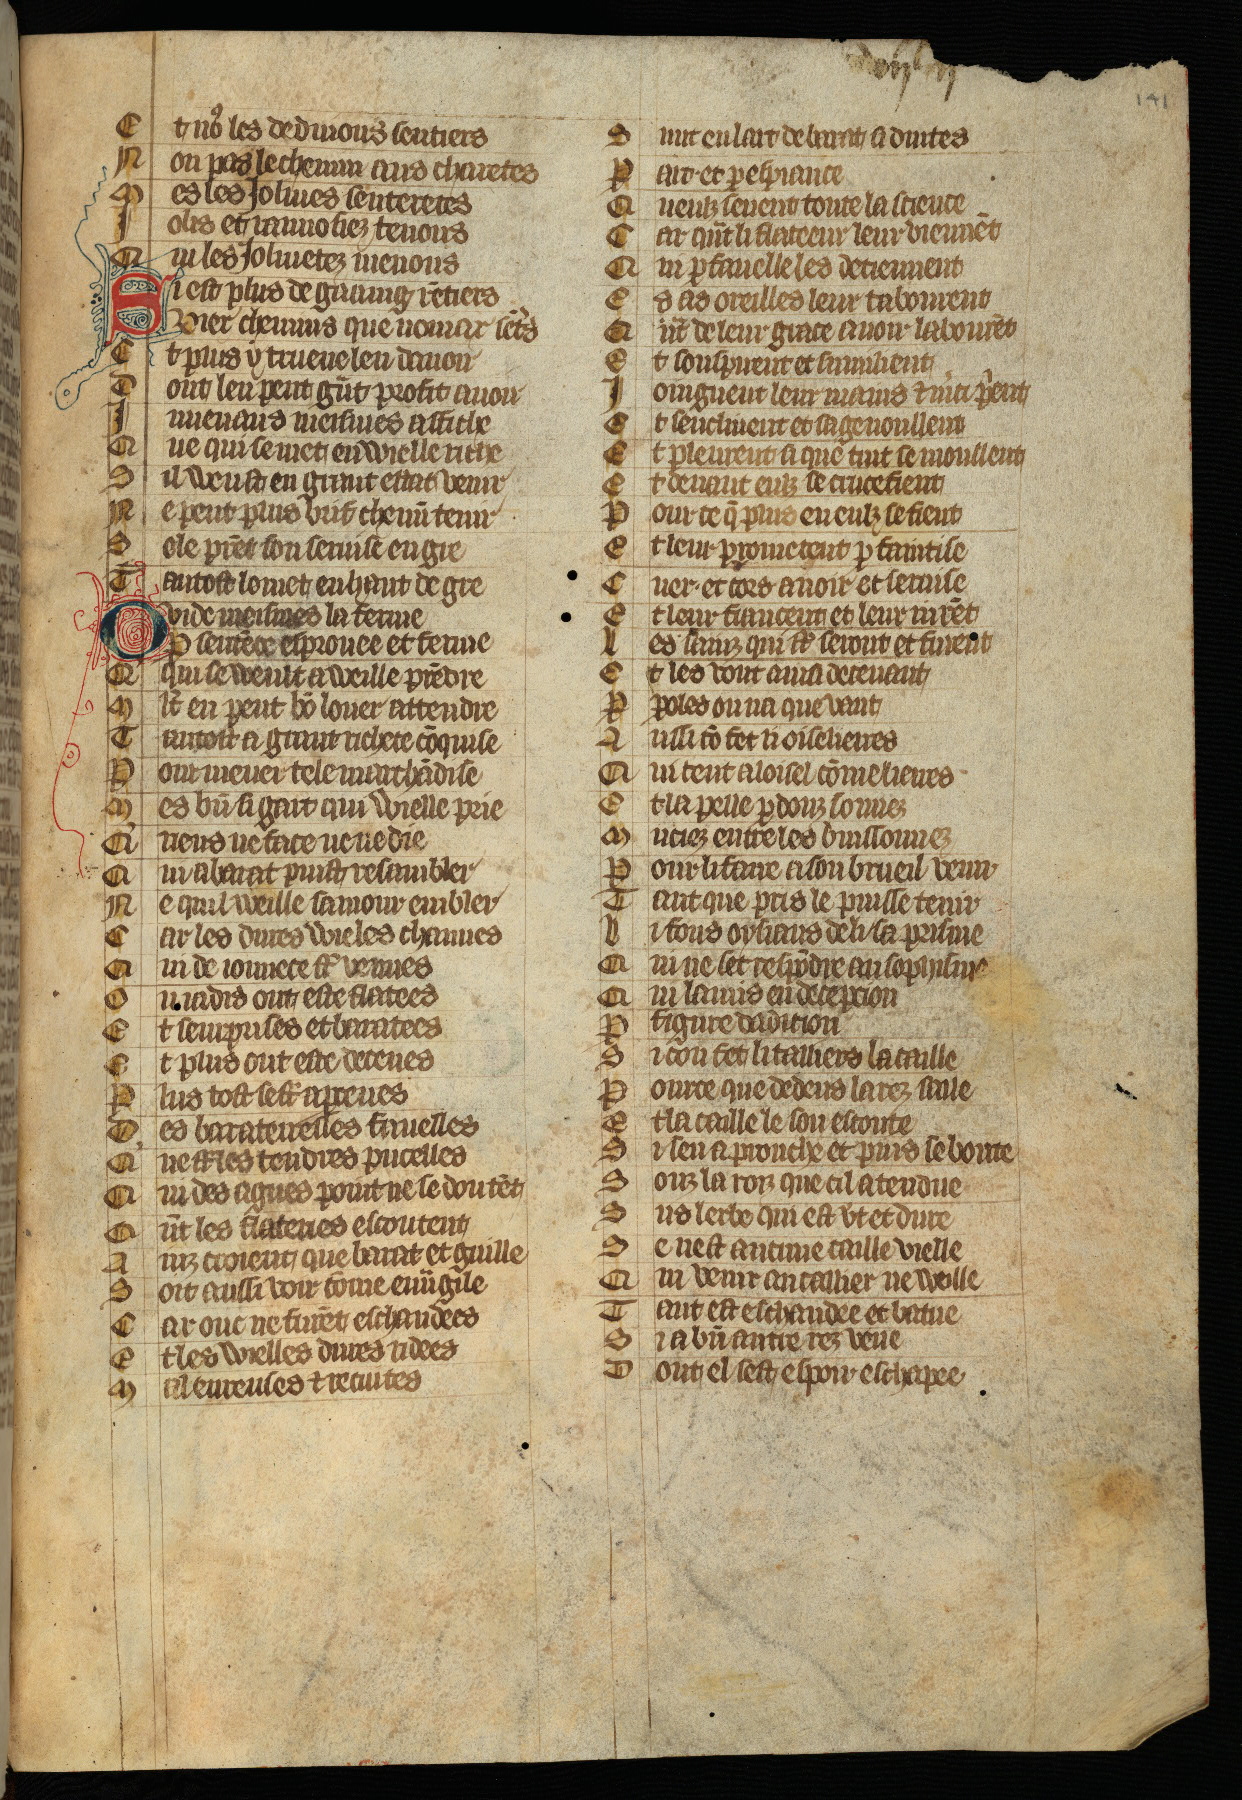 141
Et nꝰ les deduions sentiers
Non pas le chemin aus charetes
Mes les Joliues senteretes
Jolis et ranuoisiez tenons
Qui les Joliuetez menons
Si est plus de gaaing rẽtiers
Viez chemins que nouiar sẽtᵉs
Et plus y trueue len dauoir
Dont len peut gñt profit auoir
Juuenaus meismes afiche
Que qui se met en vielle riche
Sil veust en grant estat venir
Ne peut plus brief chemĩ tenir
Sole prẽt son seruise en gre
Tantost lomet en haut degre
Ouide meismes la ferme
Par sentẽce esprouee et ferme
Qui se veult a veille prẽdre
Mlt en peut bõ louer attendre
Tantost a grant richece cõquise
Pour mener tele marchãdise
Mes biẽ si gart qui vielle prie
Quiens ne face ne ne die
Qui a barat puist resambler
Ne quil veille samour embler
Car les dures vieles chanues
Qui de ionnece sont venues
Ou iadis ont este flatees
Et seurprises et baratees
Et plus ont este deceues
Plus tost se sont aperceues
Des barateresses fauelles
Que sont les tendres pucelles
Qui des agues point ne se doutẽt
Qñt les flateurs escoutent
Ainz croient que barat et guille
Soit aussi voir cõme euãgile
Car onc ne furẽt eschaudees
Et les vielles dures ridees
Malicieuses et recuites
Sunt en lart de barat si duites
Par et p espiance
Quenlz seuent toute la science
Car qũt li flateeur leur viennẽt
Qui p fauelle les detiennent
Es as oreilles leur tabourent
Qñt de leur grace auoir labourẽt
Et souspirent et simulient
Joinguent leur mains et mci p̃ent
Et senclinent et sagenoullent
Et pleurent si que tuit se moullent
Et deuant eulz se crucefient
Pour ce q̃ plus en eulz se fient
Et leur prometent p faintise
Cuer et cors auoir et seruise
Et leur fiancent et leur iurẽt
Les sainz qui sont seront et furent
Et les vont ainsi deceuant
Pparoles ou na que vant
Aussi cõ fet li oiselierres
Qui tent a loisel cõme lierres
Et lapelle p douz sonnez
Muciez entre les buissonnez
Pour li faire a son brueil venir
Tant que pris le puisse tenir
Li fous oysiaus de li sa prisme
Qui ne set respõdre au sophisme
Qui la mis en decepcion
Par figure dadition
Si con fet li cailliers la caille
Pource que dedens la rez saille
Et la caille le son escoute
Si sen aprouche et puis se boute
Souz la roiz que cil a tendue
Sus lerbe qui est vt et dure
Se nest aucune caille vielle
Qui venir au caillier ne veille
Tant est eschaudee et batue
Si a biẽ autre rez veue
Dont el sest espoir eschapee